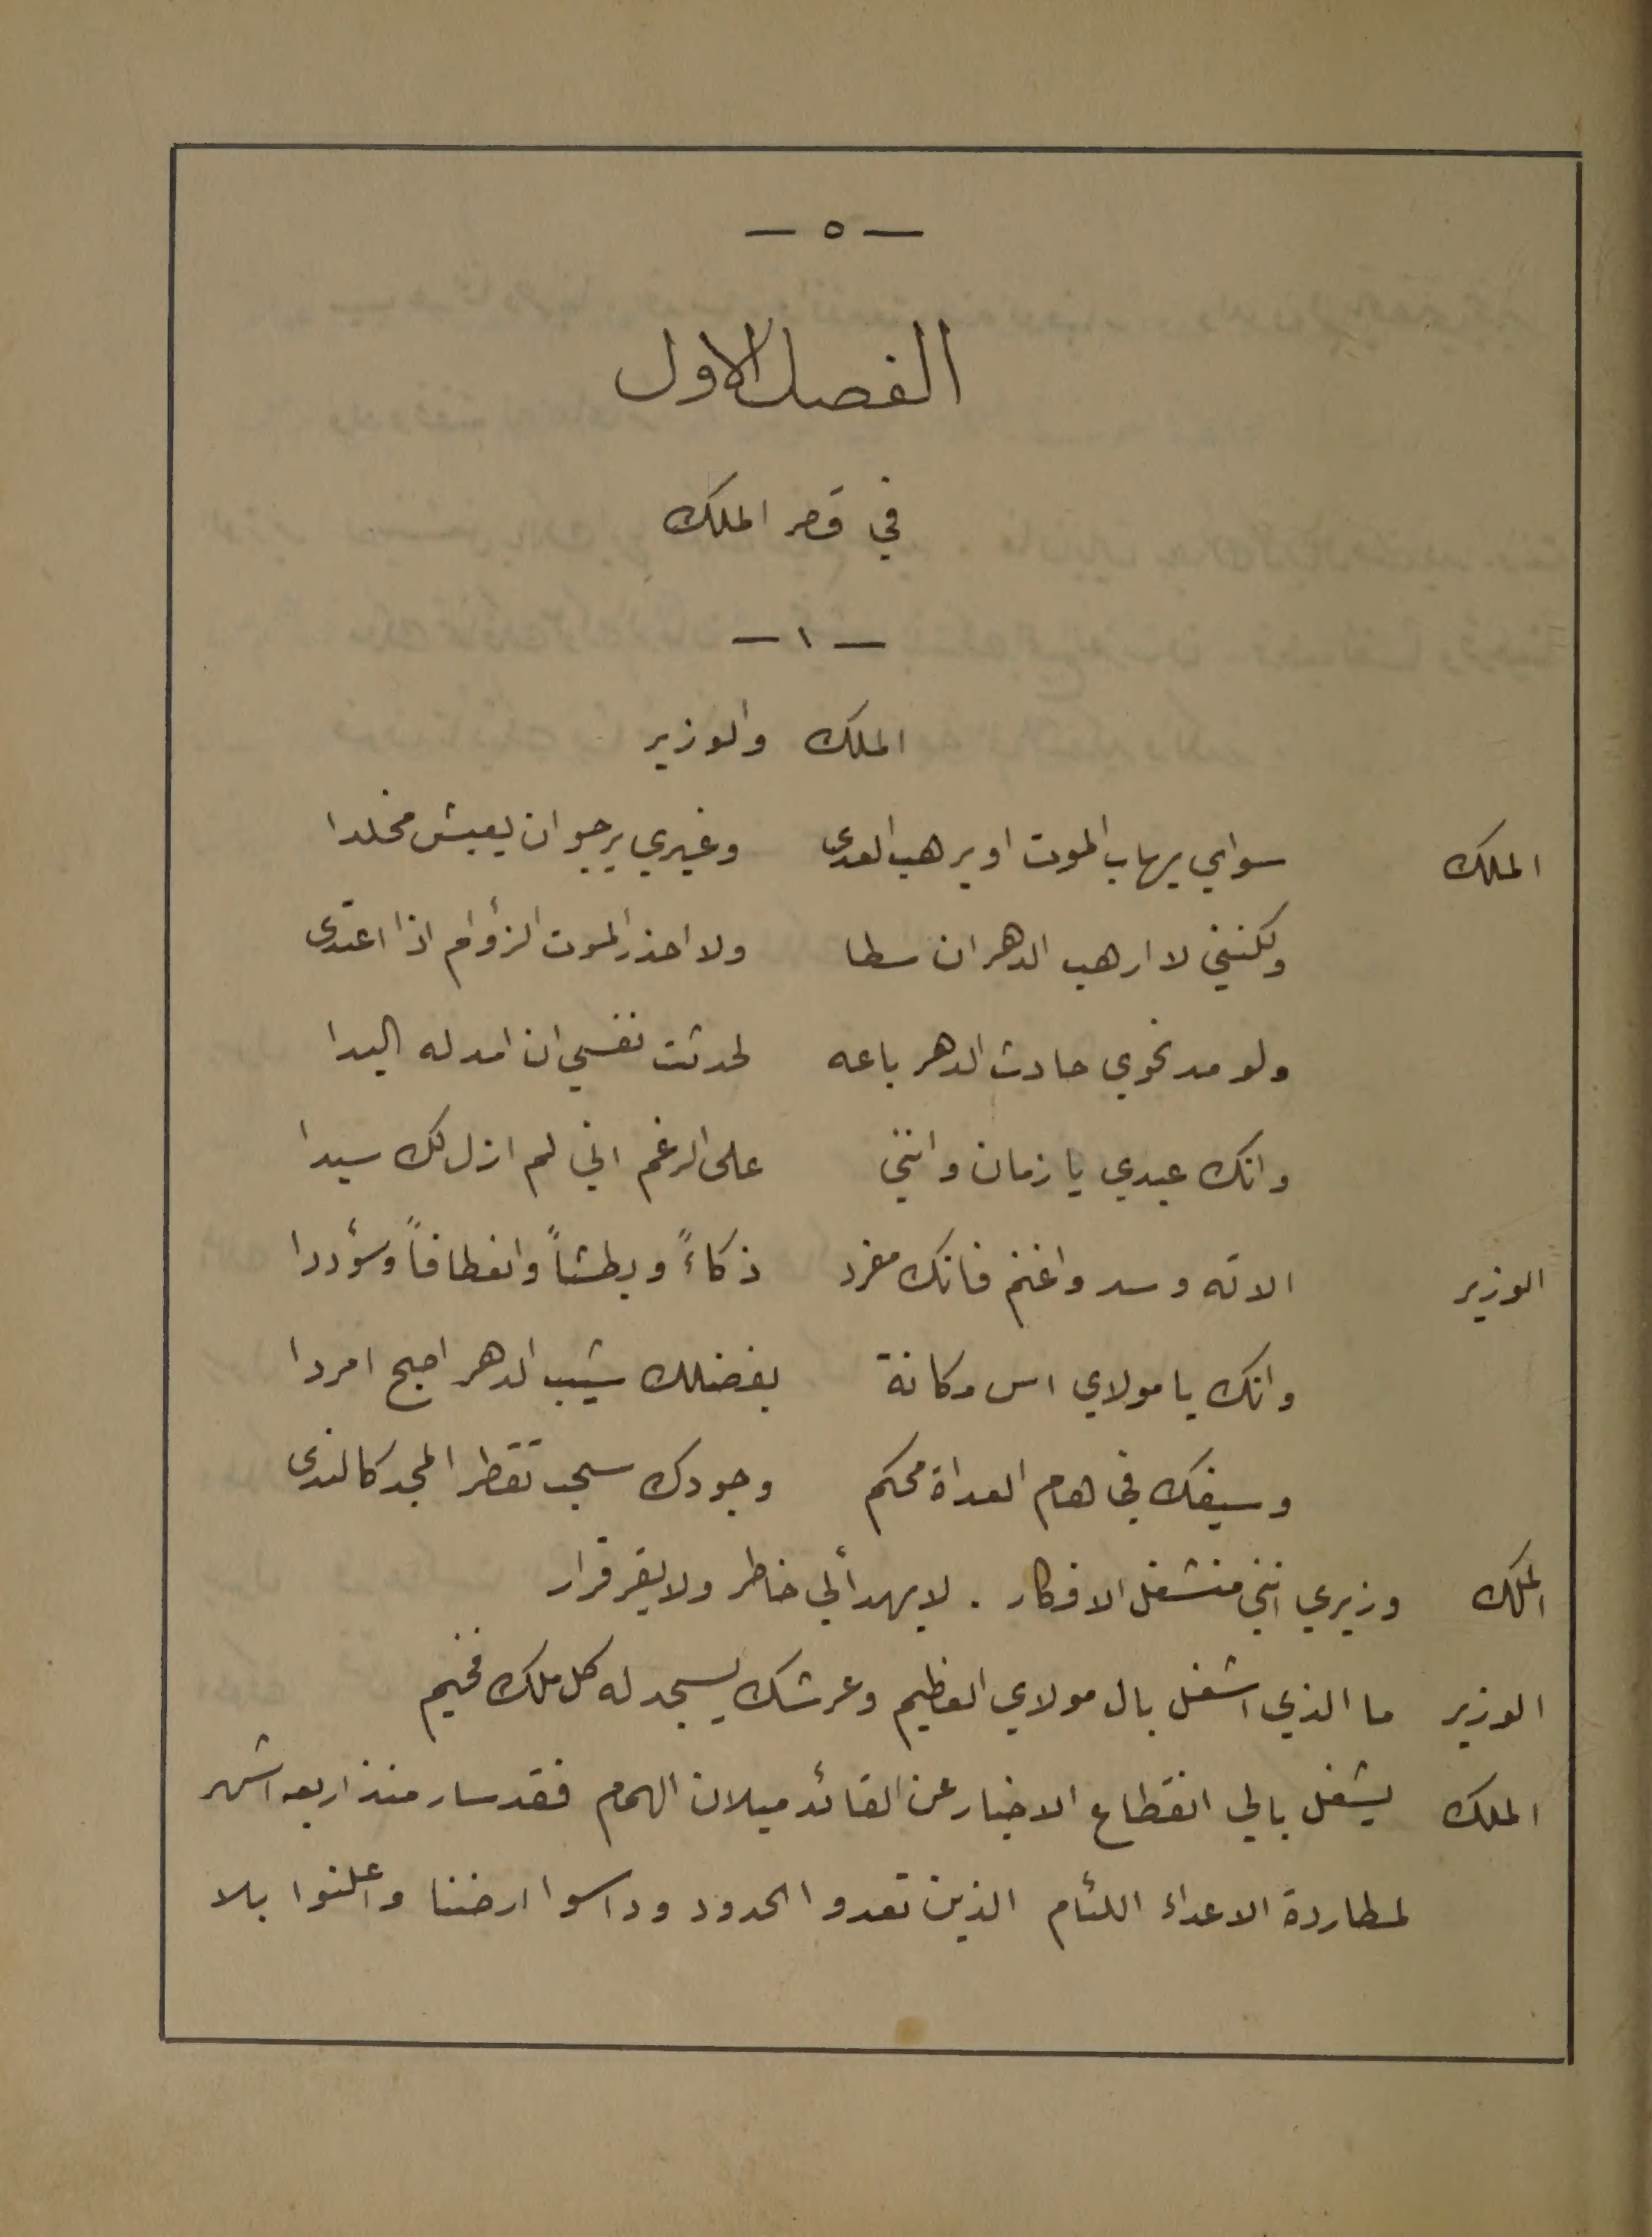 — ٥ —
الفصل الاول
في قصر الملك
— ١ —
الملك والوزير
الملك سواي يهاب الموت او يرهب العدى وغيري يرجو ان يعيش مخلدا
ولكنني لا ارهب الدهر ان سطا ولا احذر الموت الزؤام اذا اعتدى
ولو مد نحوي حادث الدهر باعه لحدثت نفسي ان امد له اليدا
وانك عبدي يا زمان وانني على الرغم اني لم ازل لك سيدا
الوزير الا ته وسد واغنم فانك مفرد ذكاءً وبطشاً وانعطافاً وسؤددا
وانك يا مولاي اس مكانة بفضلك شيب الدهر اصبح امردا
وسيفك في هام العداة محكم وجودك سحب تقطر المجد كالندى
الملك وزيري انني منشغل الافكار . لا يهدأ لي خاطر ولا يقر قرار
الوزير ما الذي اشغل بال مولاي العظيم وعرشك يسجد له كل ملك فخيم
الملك يشغل بالي انقطاع الاخبار عن القائد ميلان الهمام فقد سار منذ اربعه اشهر
لمطاردة الاعداء اللئام الذين تعدوا الحدود وداسوا ارضنا واعلنوا بلا